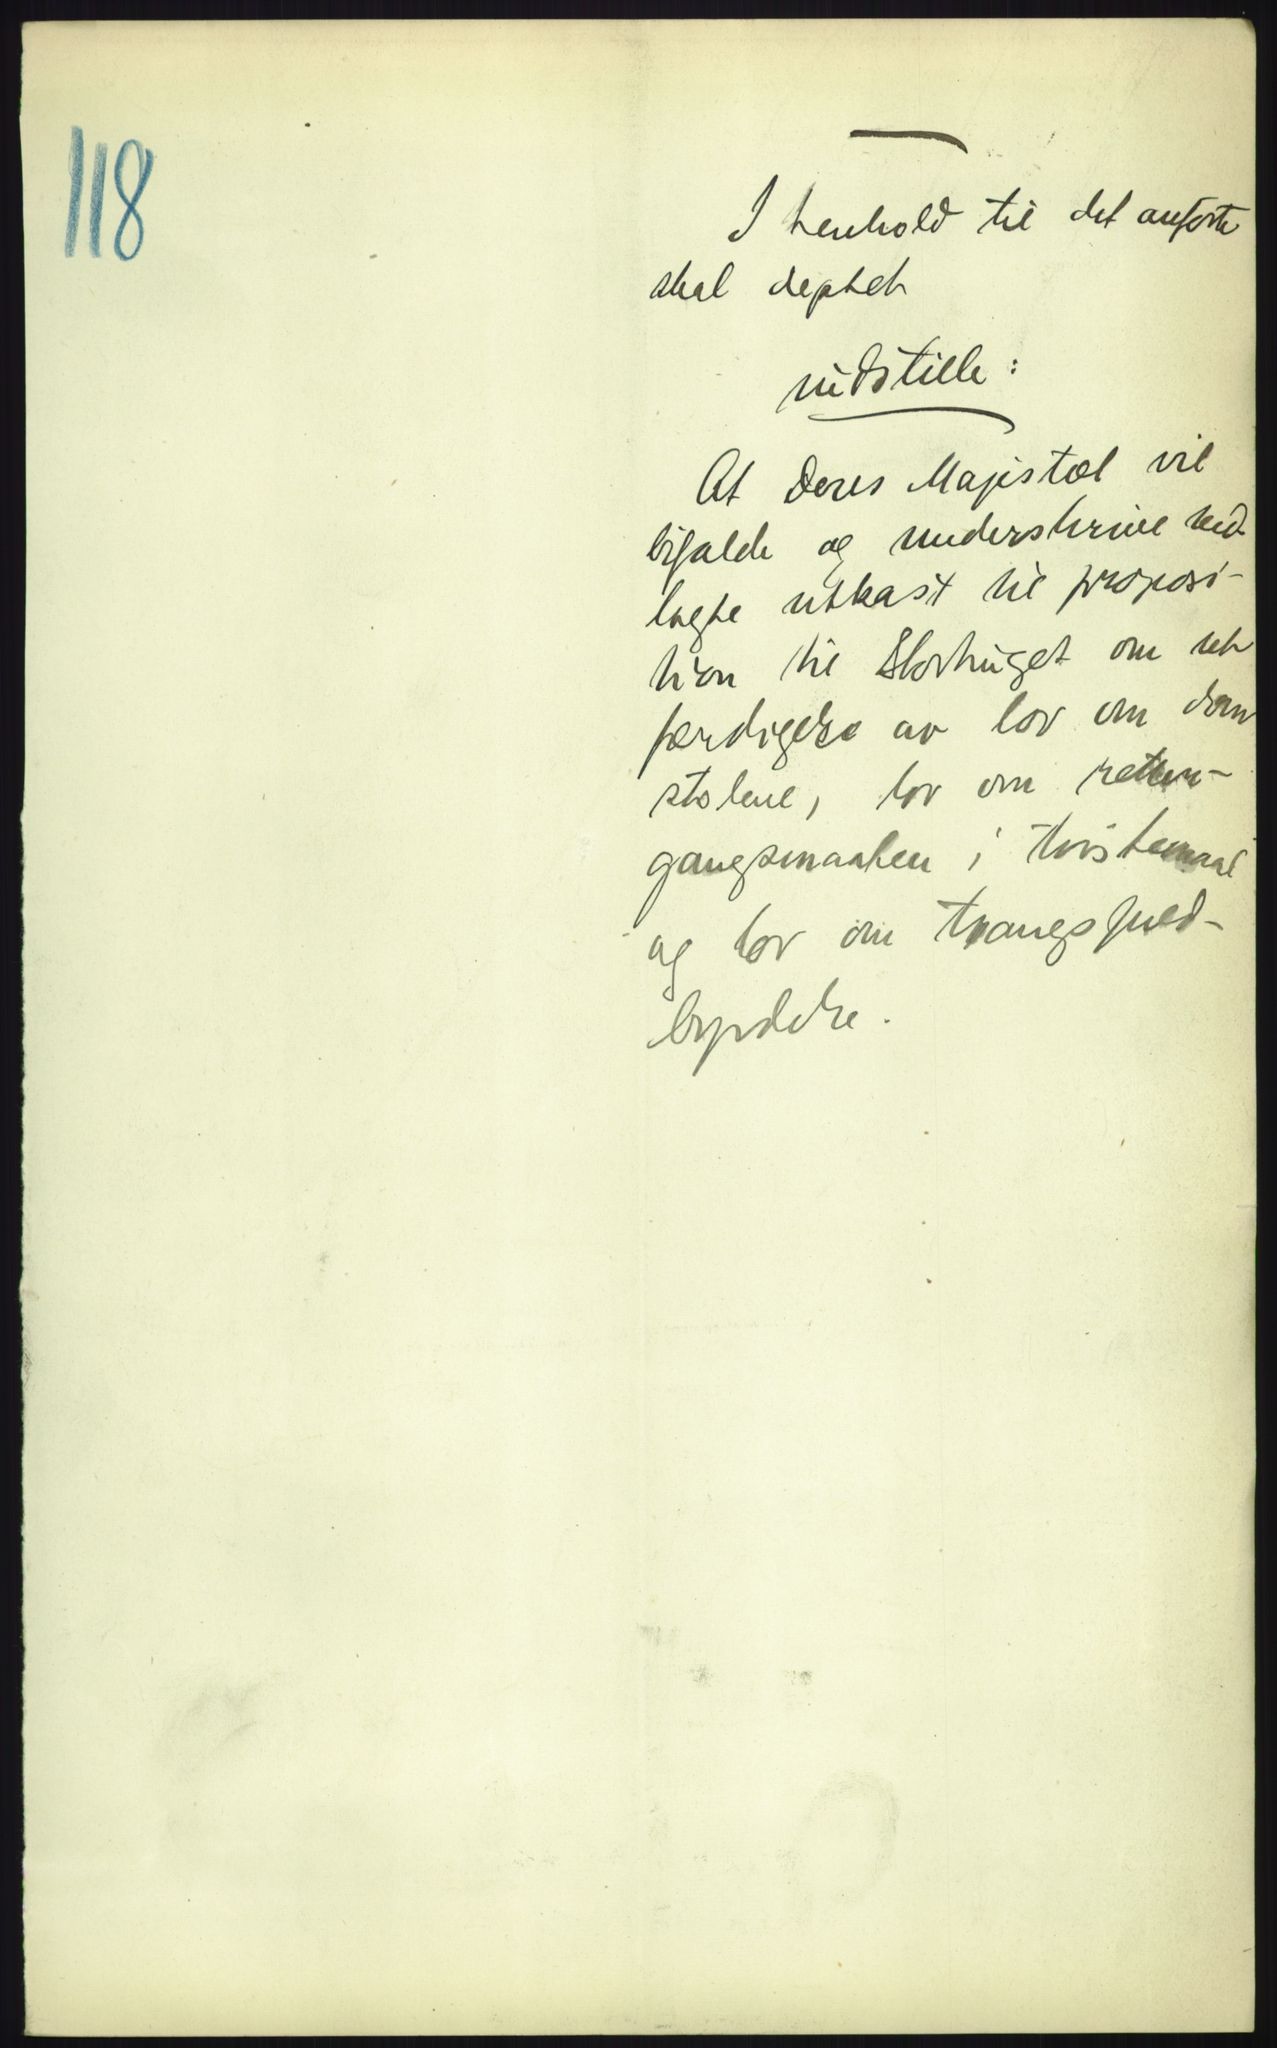 118
I henhold til det anførte
skal deptet
indstille:
At Deres Majestæt vil
bifalde og underskrive ved
lagte utkast til proposi-
tion til Stortinget om ret
færdigelse av lov om dom
stolene, lov om retter-
gangsmaaten i tvistemaal
og lov om tvangsfuld-
byrdelse.